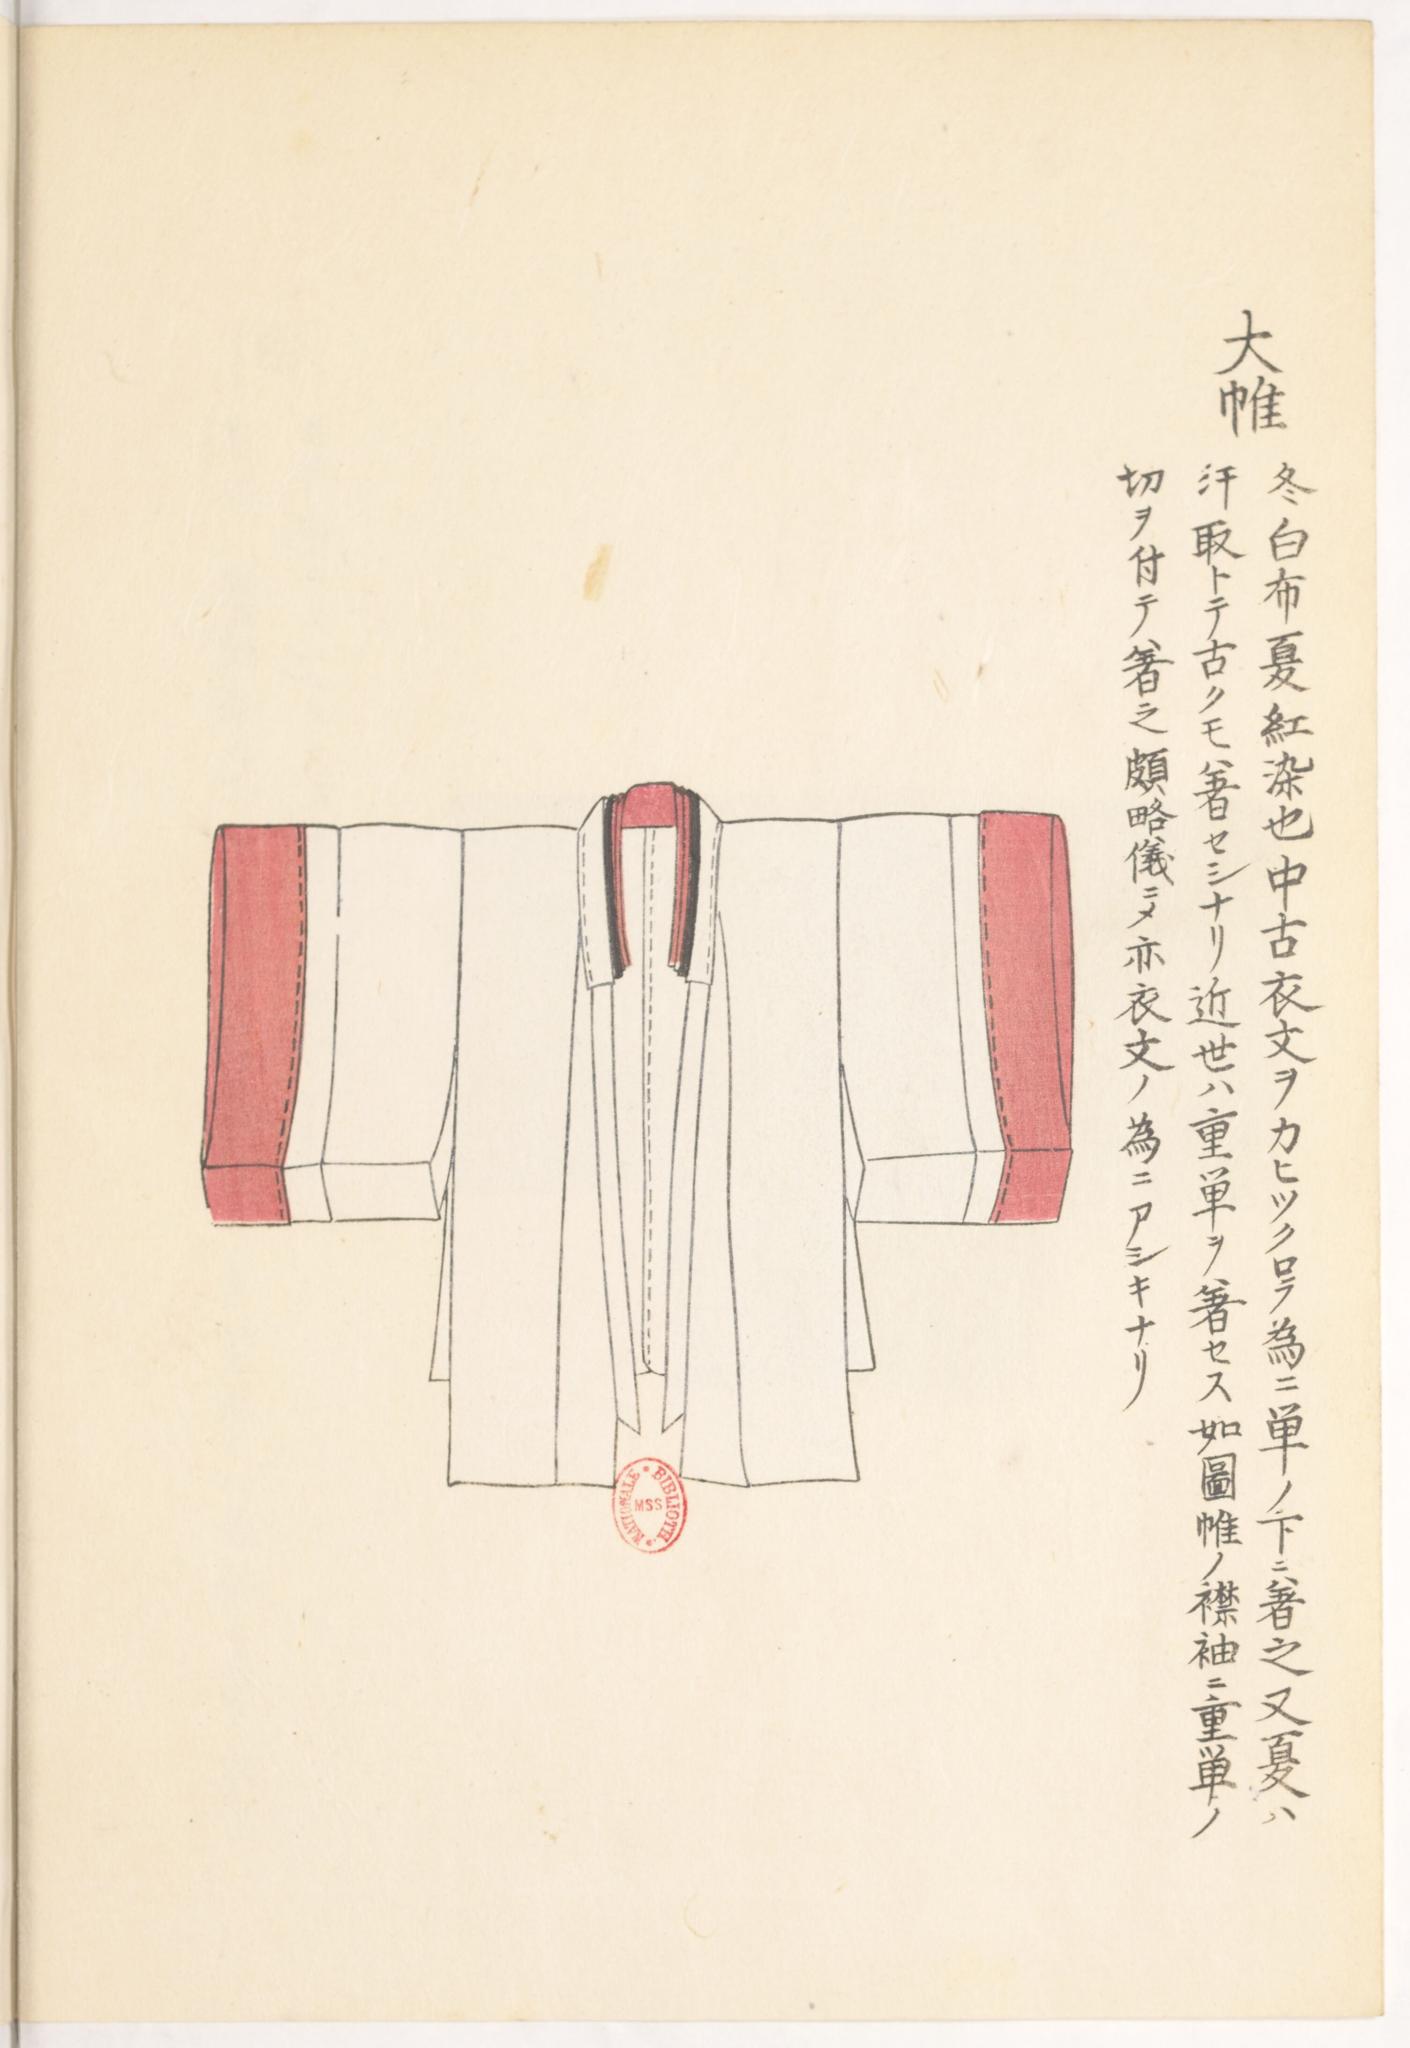 大帷
冬白布夏紅染也中古衣文ヲカヒツクロフ為ニ単ノ下ニ著之又夏ハ
汗取トテ古クモ著セシナリ近世ハ重単ヲ著セス如圖帷ノ襟袖ニ重単ノ
切ヲ付テ著之頗略儀ニメ亦衣文ノ為ニアシキナリ
BIBLIOTH. NATIONALE
MSS